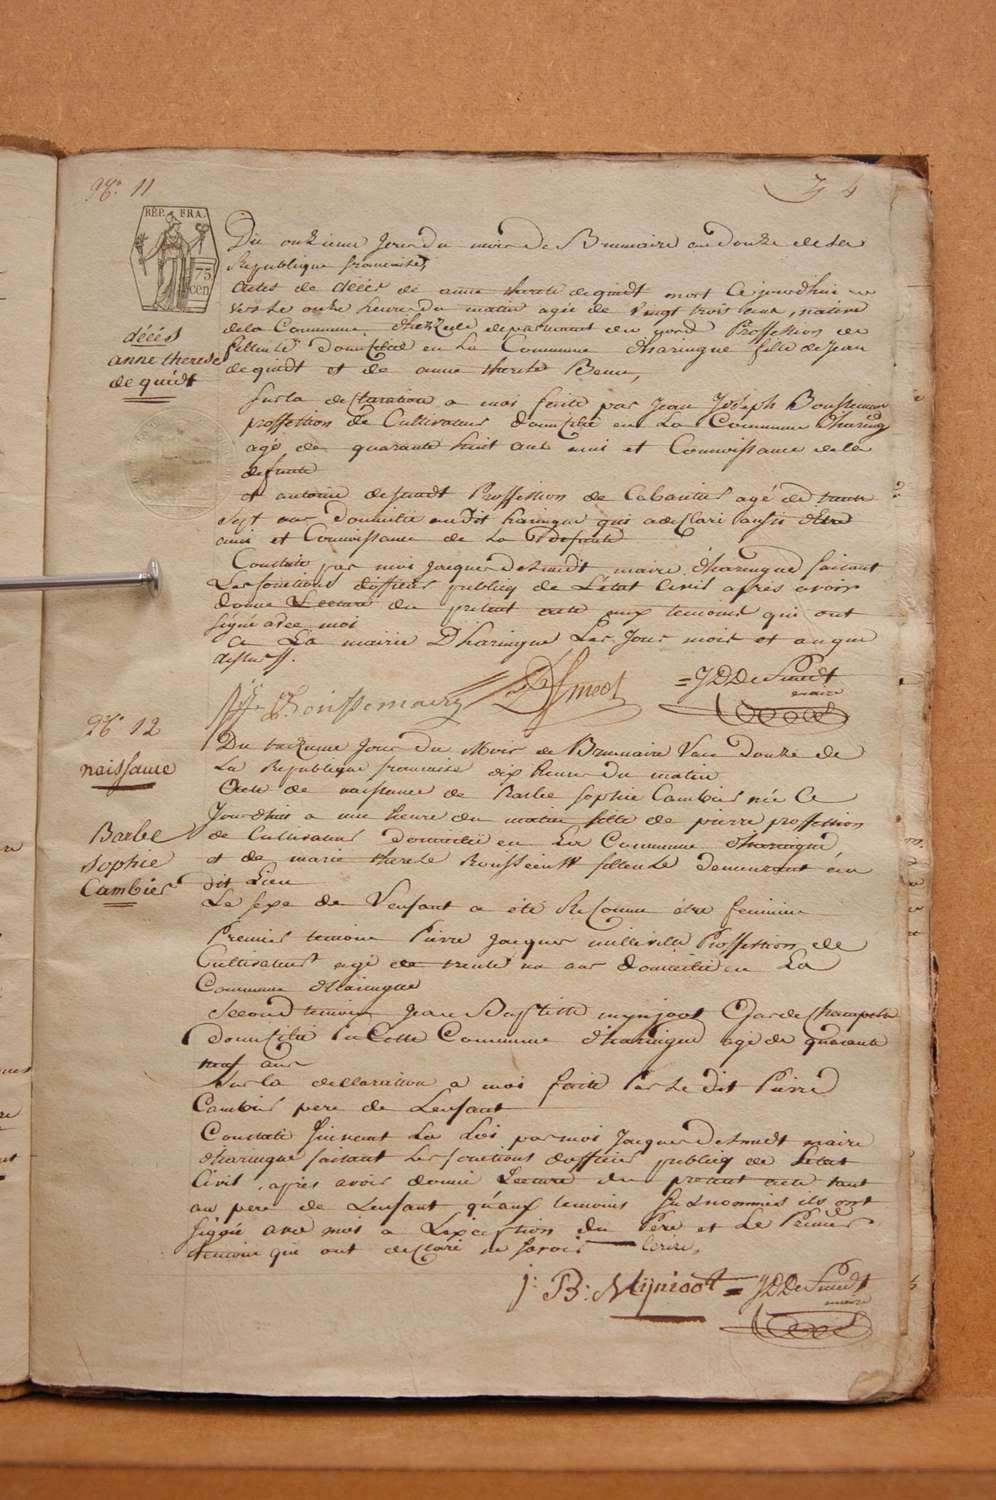 N°. 11
4
RÉP. FRA.
75
cen
décés
anne therese
de quidt
Du onzieme Jour du mois de Brumaire an douze de la
Republique francaise,
Actes de décés de anne therese de quidt mort Ce jourdhui
vers le onze heure du matin agée de vingt trois ans, native
de la Commune departement du nord Proffession de
fileuse domicilié en La Commune dharingue fille de Jean
de quidt et de anne therese
Sur la declaration a moi faite par Jean Joseph Boussemaer
proffession de Cultivateur domicilié en La Commune dharing
agé de quarante huit ans ami et Connoissance de la
defunte
et antoine desmidt Proffession de Cabartier agé de trente
sept ans domicilié audit haringue qui a declaré aussi d'etre
ami et Connoissance de La defunte
Constaté par moi Jacques desmidt maire d'haringue faisant
Les fonctions d'officier publiq de L'état Civil après avoir
donné Lecture du present acte aux temoins qui ont
signé avec moi
a La mairie Dharingue Les Jour mois et an que
dessus.
J Boussemaere
A D Smedt
= JDDeSmedt
maire
N° 12
naissance
Barbe
Sophie
Cambier
Du treizieme Jour du Mois de Brumaire l'an douze de
La Republique francaise dix heure du matin
Acte de naissance de Barbe Sophie Cambier née Ce
Jourdhui a une heure du matin fille de pierre proffession
de Cultivateur domicilié en La Commune dharingue,
et de marie therese fileuse demeurant en
dit Lieu
Le sexe de l'enfant a été Reconnu etre feminine
Premier temoin Pierre Jacques milleville Proffession de
Cultivateur agé de trente un ans domicilié en La
Commune dharingue
Second temoin Jean Baptiste mynjoot Garde Champetre
domicilié en Cette Commune d'haringue agé de quarante
neuf ans
Sur la declaration a moi faite Par Le dit Pierre
Cambier pere de Lenfant
Constaté Suivant La Loi par moi Jacques desmedt maire
dharingue faisant Les fonctions dofficier publiq de Létat
Civil, après avoir donné Lecture du present acte tant
au pere de Lenfant qu'aux temoins Susnommés ils ont
signé avec moi a Lexception du Pere et Le Premier
temoin qui ont declaré ne savoir ecrire,
j: B: Mijnioot = JDDeSmedt
maire